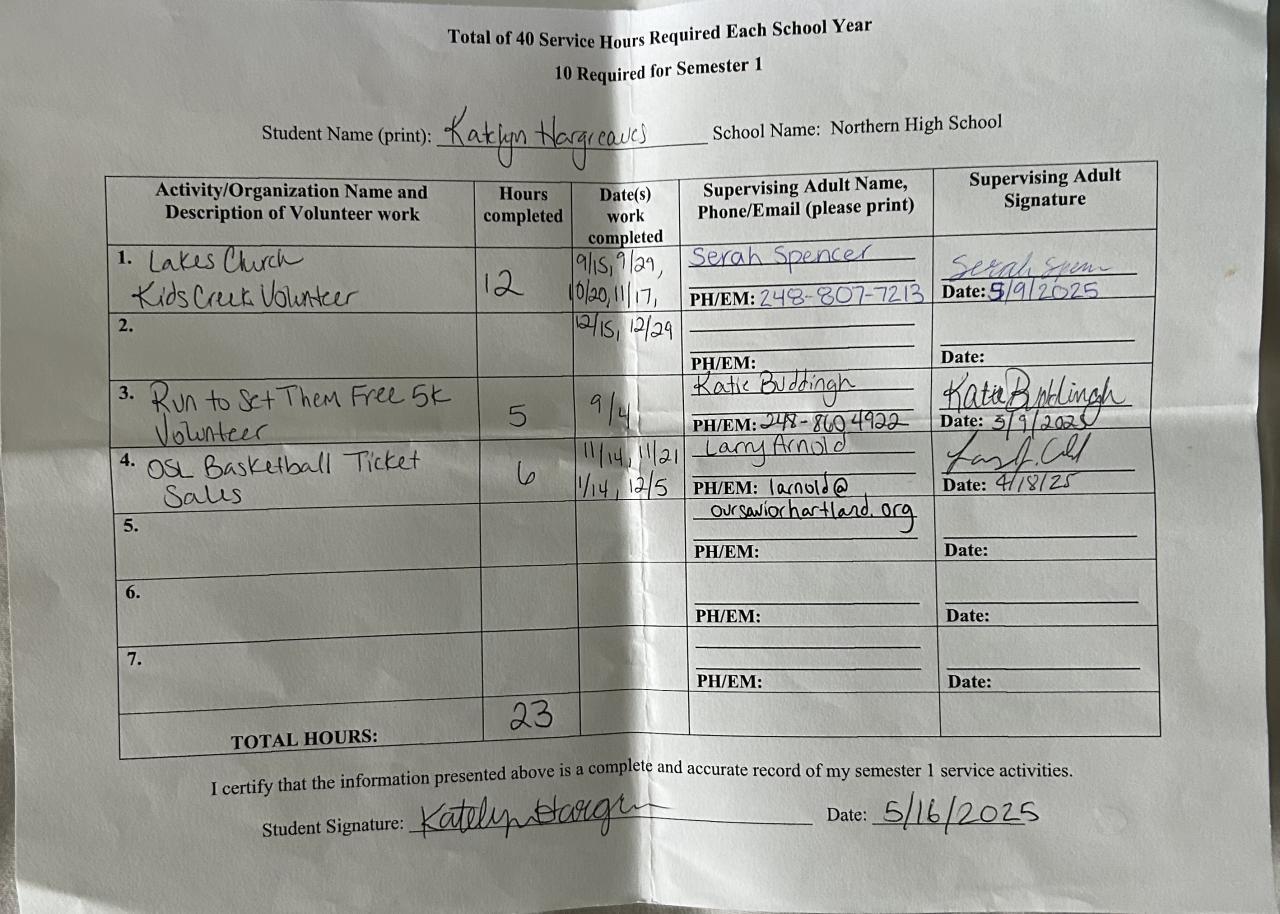 Total of 40 Service Hours Required Each School Year
10 Required for Semester 1
Student Name (print): Katelyn Hargreaves School Name: Northern High School
Activity/Organization Name and Description of Volunteer work
Hours completed
Date(s) work completed
Supervising Adult Name, Phone/Email (please print)
Supervising Adult Signature
1. Lakes Church
Kids Creek Volunteer
12
9/15, 9/29,
10/20, 11/17,
Serah Spencer
PH/EM: 248-807-7213
Serah Spen
Date: 5/9/2025
2.
12/15, 12/29
PH/EM:
Date:
3. Run to Set Them Free 5k
Volunteer
5
9/4
Katie Buddingh
PH/EM: 248-860 4922
Katie Buddingh
Date: 5/9/2025
4. OSL Basketball Ticket
Sales
6
11/14, 11/21
1/14, 12/5
Larry Arnold
PH/EM: larnold@
Date: 4/18/25
5.
oursaviorhartland.org
PH/EM:
Date:
6.
PH/EM:
Date:
7.
PH/EM:
Date:
TOTAL HOURS:
23
I certify that the information presented above is a complete and accurate record of my semester 1 service activities.
Student Signature: Katelyn Hargr Date: 5/16/2025